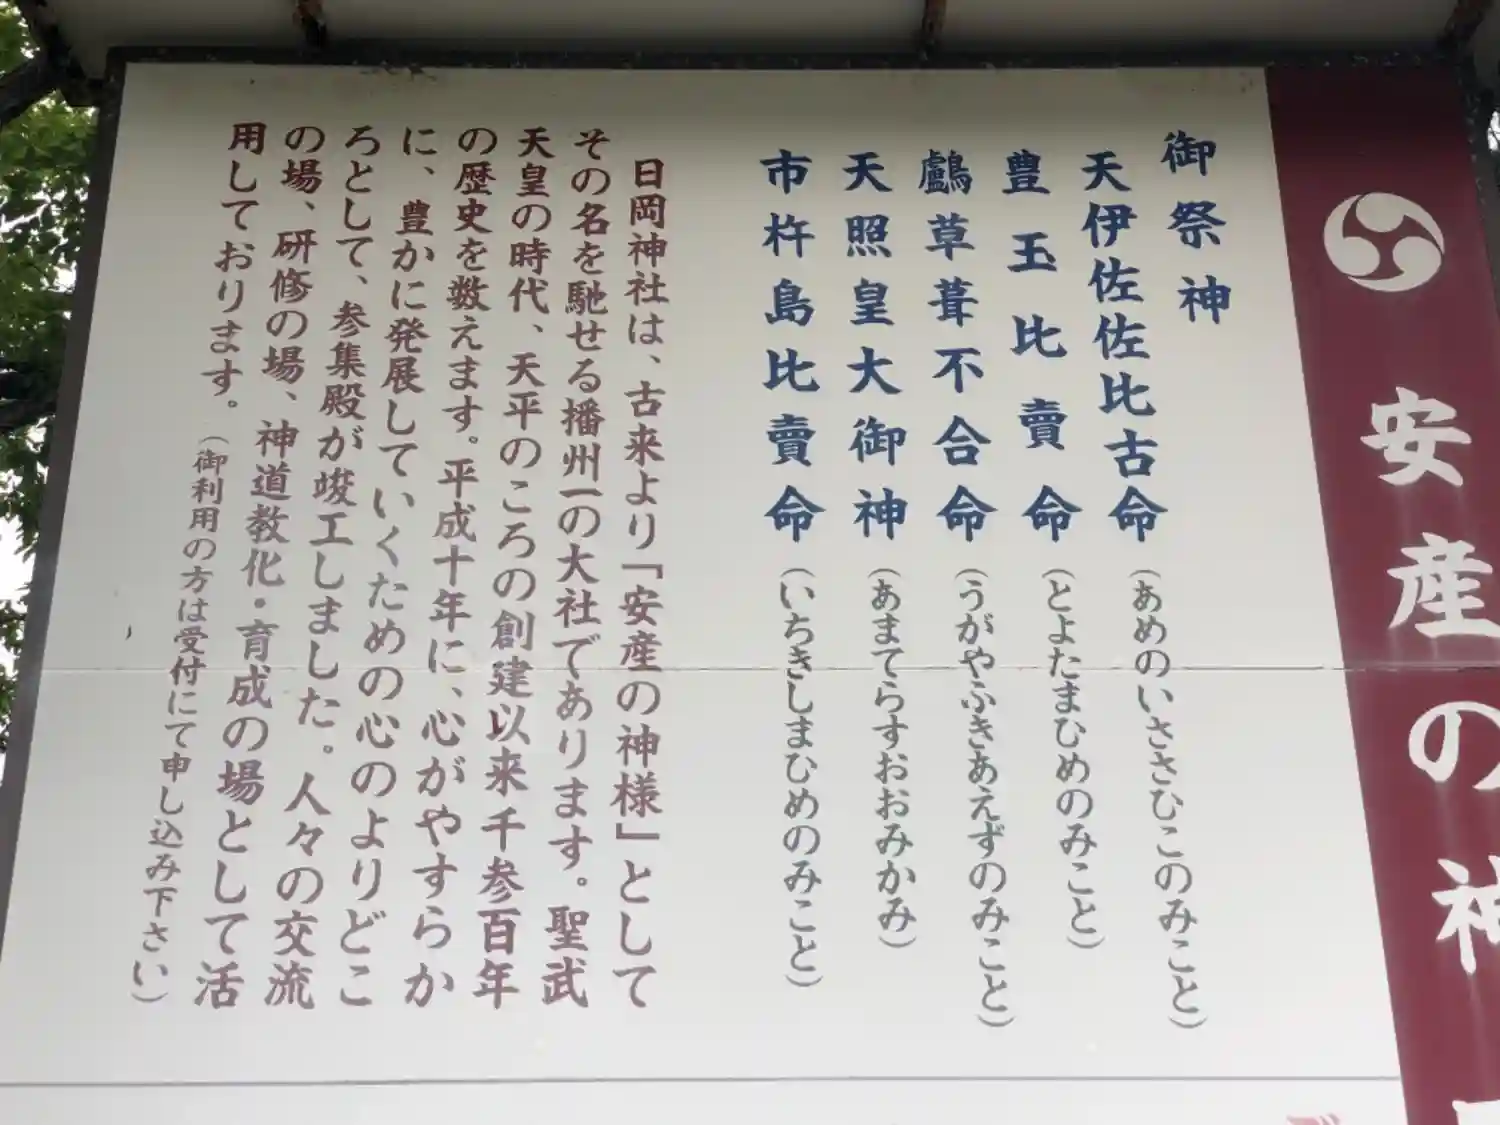 安産の神
御祭神
天伊佐佐比古命（あめのいささひこのみこと）
豊玉比賣命（とよたまひめのみこと）
鸕草葺不合命（うがやふきあえずのみこと）
天照皇大御神（あまてらすおおみかみ）
市杵島比賣命（いちきしまひめのみこと）
日岡神社は、古来より「安産の神様」として
その名を馳せる播州一の大社であります。聖武
天皇の時代、天平のころの創建以来千参百年
の歴史を数えます。平成十年に、心がやすらか
に、豊かに発展していくための心のよりどこ
ろとして、参集殿が竣工しました。人々の交流
の場、研修の場、神道教化・育成の場として活
用しております。（御利用の方は受付にて申し込み下さい）